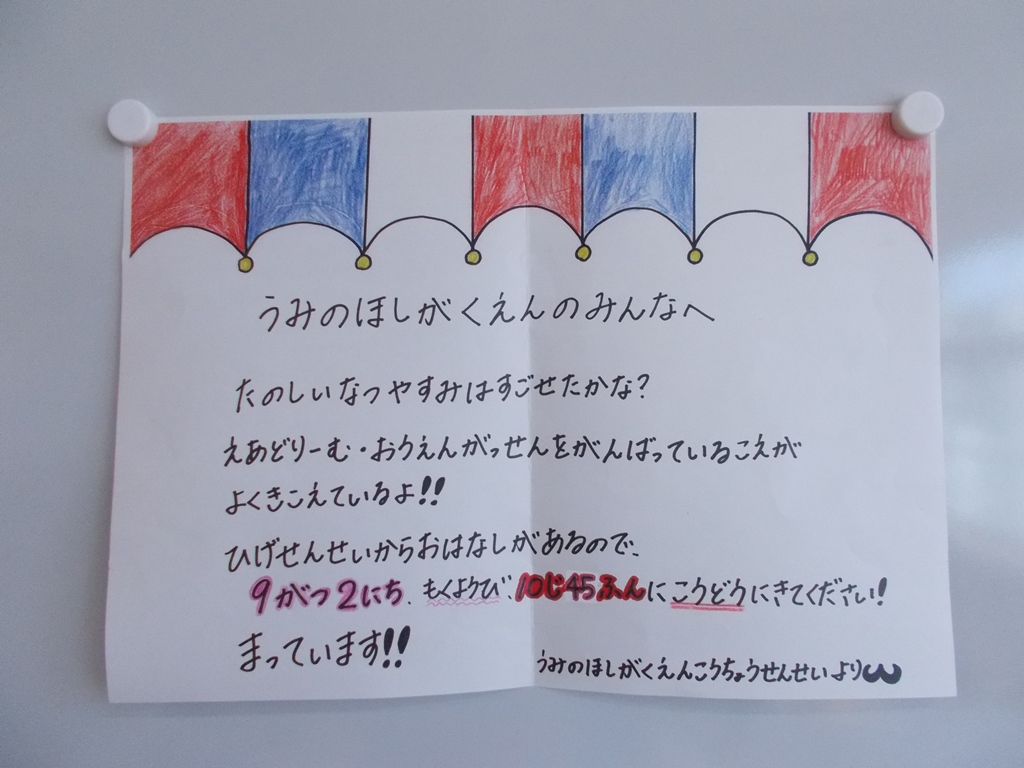 うみのほしがくえんのみんなへ
たのしいなつやすみはすごせたかな?
えあどりーむ・おうえんがっせんをがんばっているこえが
よくきこえているよ!!
ひげせんせいからおはなしがあるので、
9がつ2にち、もくようび、10じ45ふんにこうどうにきてください!
まっています!!
うみのほしがくえんこうちょうせんせいより